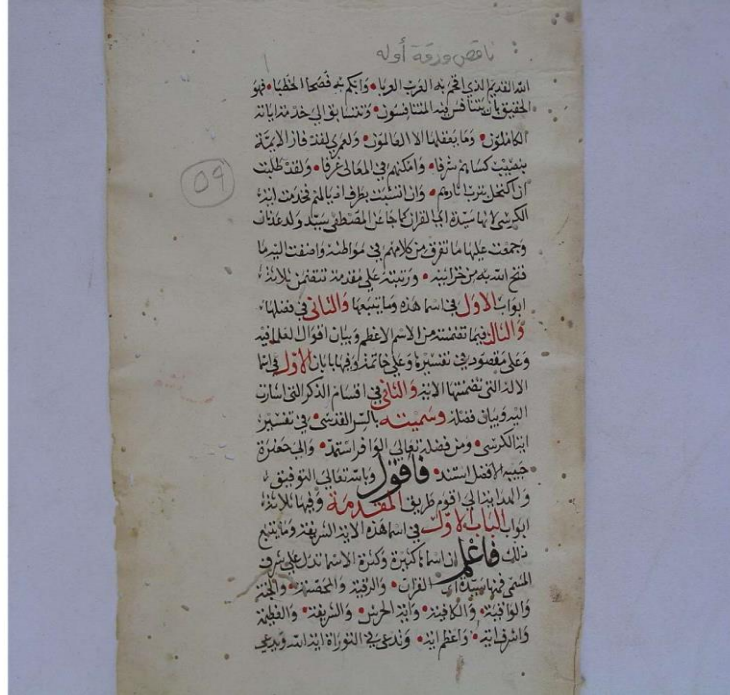 ناقص ورقة أوله
الله القديم الذي افحم به العرب العربا • وابكم به فصحا الخطبا • فهو
الحقيق بان يتنافس فيه المتنافسون • ويتسابق الي خدمة اياته
الكاملون • وما يعقلها الا العالمون • ولعمري لقد فاز الايمة
بنصيب كساهم شرفا • وامكنهم في المعالي غرفا • ولقد طلبت
ان اكتحل بترب اثارهم • وان اتشبث بطرف اذيالهم فخدمت اية
٥٩
الكرسي لانها سيدة اي القران كما جا عن المصطفي سيد ولد عدنان
وجمعت عليها ما تفرق من كلامهم في مواطنه واضفت اليه ما
فتح الله به من خزاينه • ورتبته علي مقدمة تتضمن ثلاثة
ابواب الاول في اسما هذه وما يتبعها والثاني في فضلها
والثالث فيما تضمنته من الاسم الاعظم وبيان اقوال العلما فيه
وعلي مقصود في تفسيرها وعلي خاتمة وفيها بابان الاول في اسما
الاله التي تضمنتها الاية والثاني في اقسام الذكر التي اشارت
اليه وبيان فضله وسميته بالسر القدسي في تفسير
اية الكرسي • ومن فضله تعالي الوافر استمد • والي حضرة
حبيبه الافضل استند • فاقول وبالله تعالي التوفيق
والهداية الي اقوم طريق المقدمة وفيها ثلاثة
ابواب الباب الاول في اسما هذه الاية الشريفة وما يتبع
ذلك فاعلم ان اسماها كثيرة وكثرة الاسما تدل علي شرف
المسمي فمنها سيدة اي القران • والرقية والمحصنة • والجنة
والواقية • والكافية • واية الحرس • والشريفة • والعظيمة
واشرف اية • واعظم اية • وتدعي في التوراة اية الله ويدعي